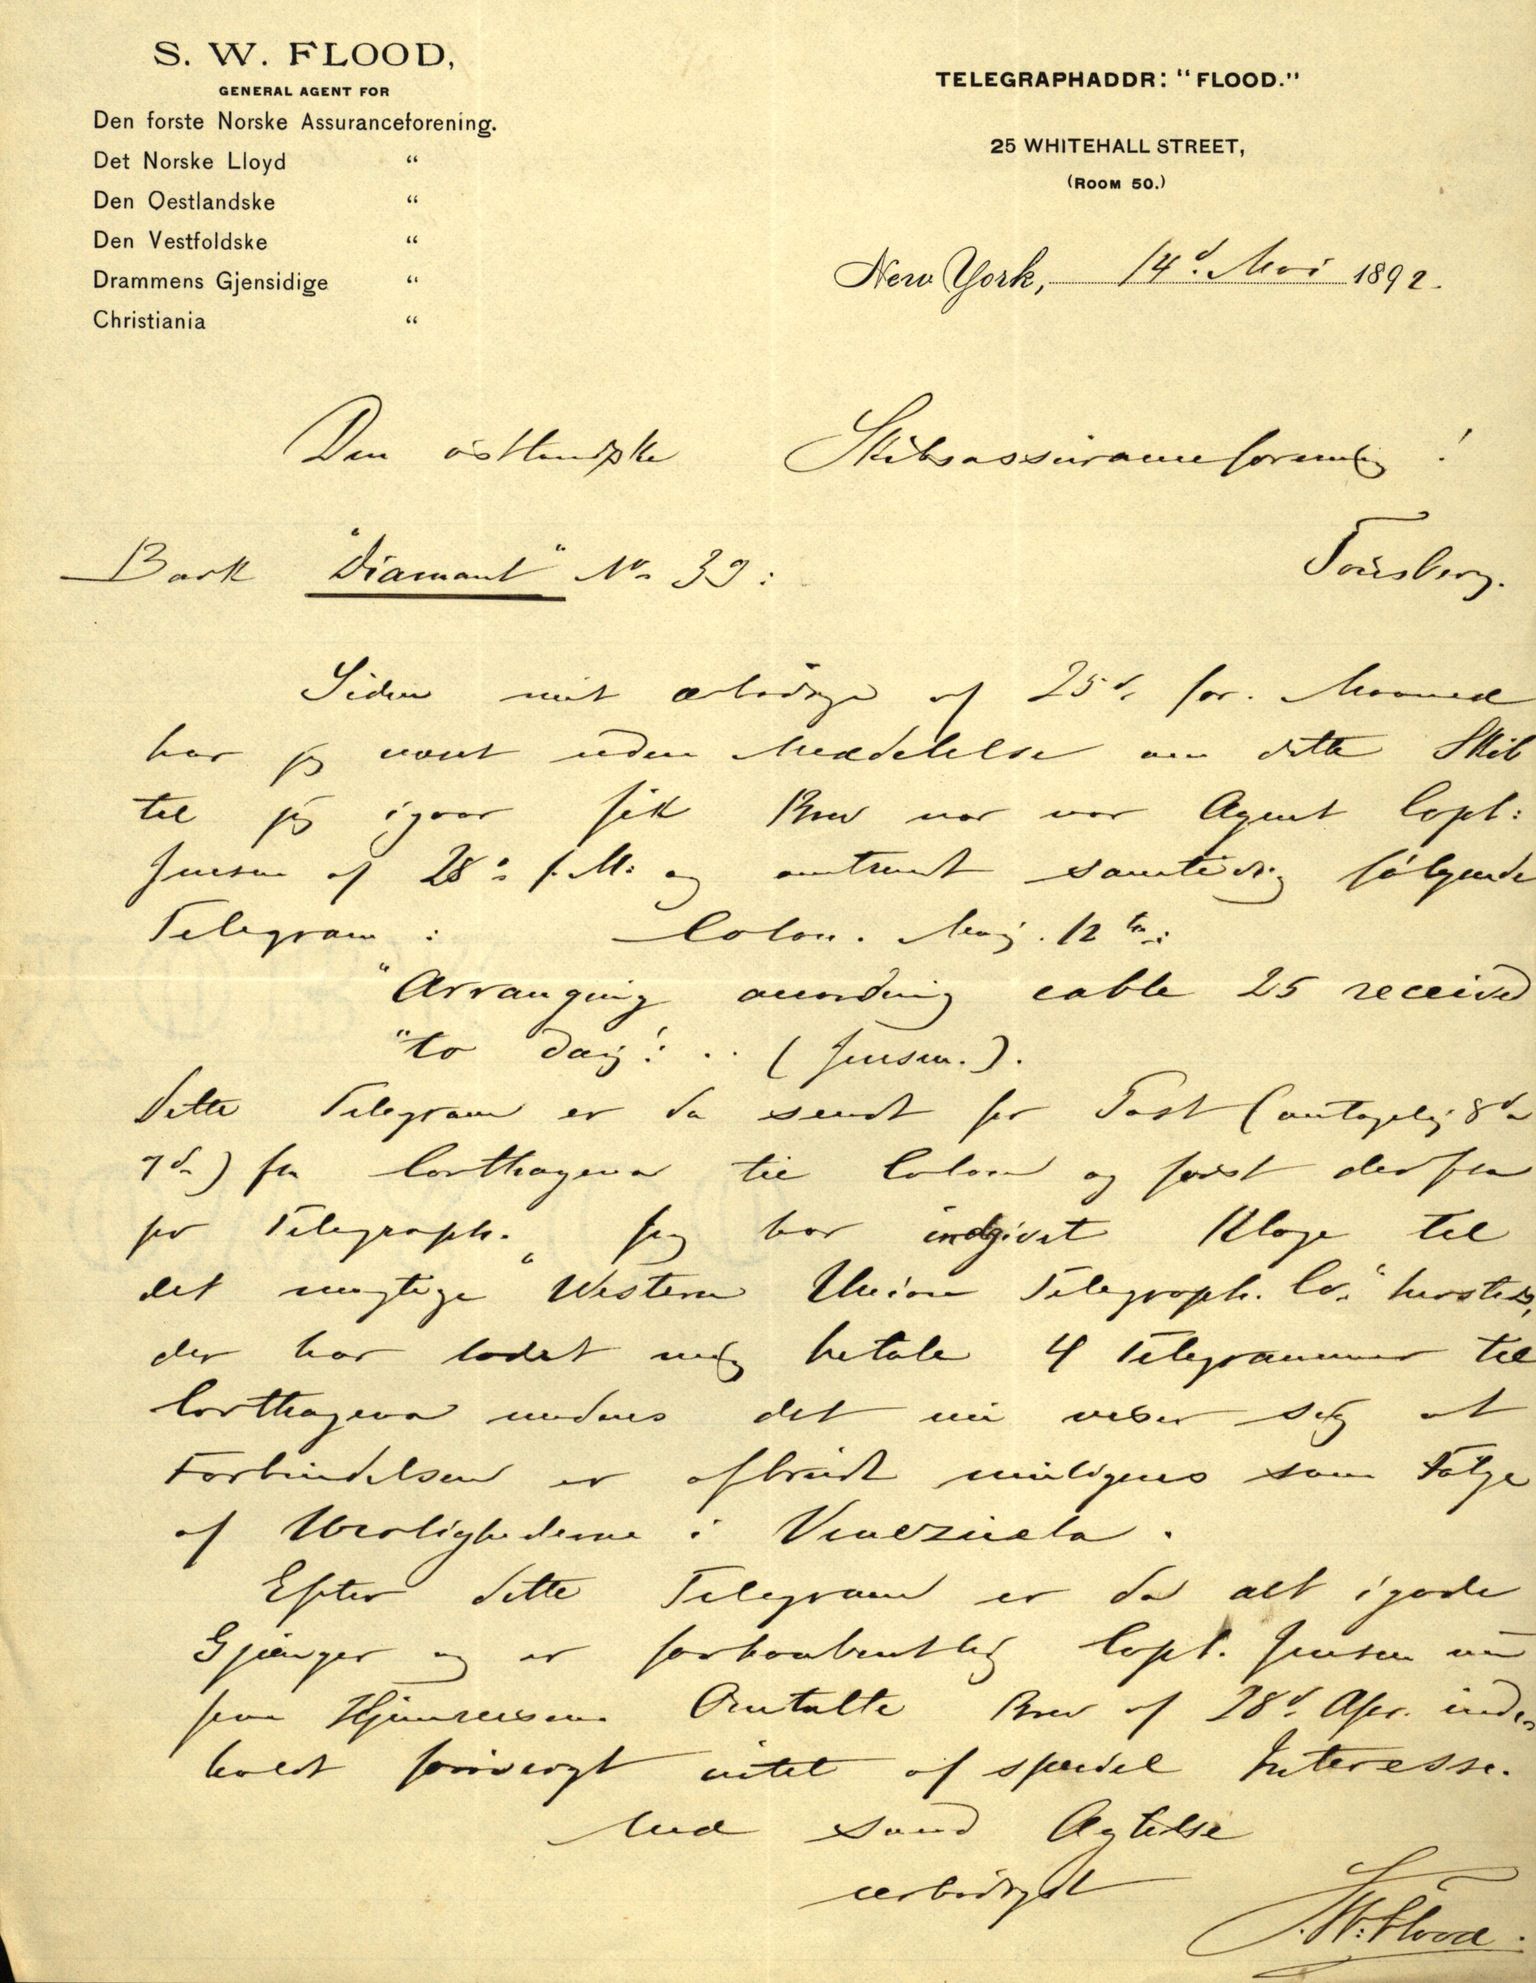 S. W. FLOOD,
GENERAL AGENT FOR
Den forste Norske Assuranceforening.
Det Norske Lloyd "
Den Oestlandske "
Den Vestfoldske "
Drammens Gjensidige "
Christiania "
TELEGRAPHADDR: "FLOOD."
25 WHITEHALL STREET,
(ROOM 50.)
New York, 14d. Mai 1892.
Den østlandske Skibsassuranceforening!
Tønsberg.
Bark "Diamant" No 39:
Siden mit ærbødige af 25d. for. Maaned
har jeg været uden Meddelelse om dette Skib
til jeg igaar fik Brev fra vor Agent Capt:
Jensen af 28d. f. M: og omtrent samtidig følgende
Telegram: Colon. May. 12th:
"Arranging according cable 25 received
"to day": .. (Jensen.).
Dette Telegram er da sendt per Post (antagelig 8d a
7d) fra Carthagena til Colon og først derfra
per Telegraph. Jeg har indgivet Klage til
det mægtige "Western Union Telegraph. Co." hersteds,
der har ladet mig betale 4 Telegrammer til
Carthagena medens det nu viser sig at
Forbindelsen er afbrudt muligens som Følge
af Urolighederne i Venezuela.
Efter dette Telegram er da alt i gode
Gjænger og er forhaabentlig Capt. Jensen nu
paa Hjemreisen. Omtalte Brev af 28d. Apr. inde-
holdt forøvrigt intet af speciel Interesse.
Med sand Agtelse
ærbødigst
S. W. Flood.